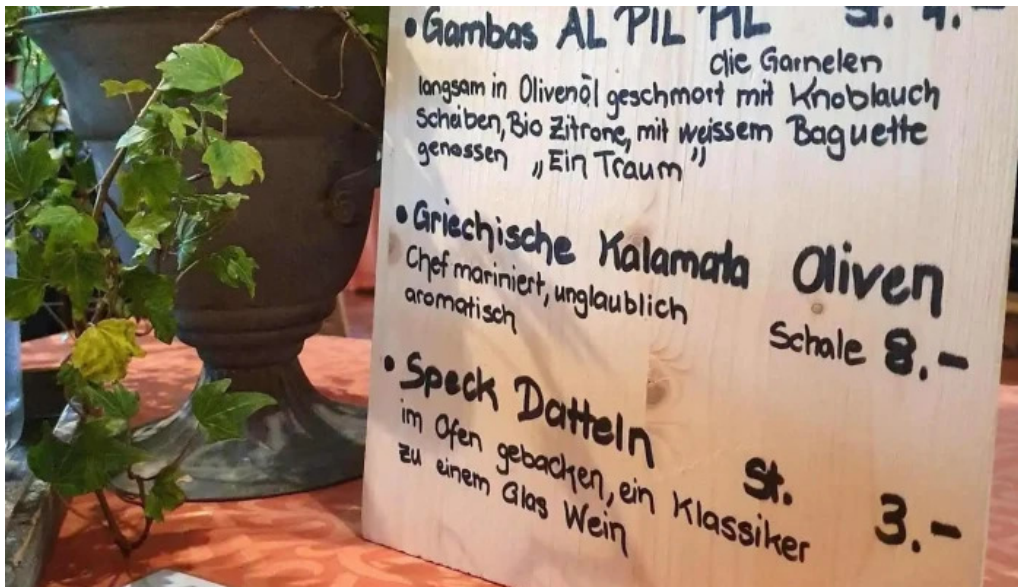 • Gambas AL PIL PIL St. 4.-
die Garnelen
langsam in Olivenöl geschmort mit Knoblauch
Scheiben, Bio Zitrone, mit weissem Baguette
genossen „Ein Traum”
• Griechische Kalamata Oliven
Chef mariniert, unglaublich
aromatisch
Schale 8.-
• Speck Datteln
im Ofen gebacken, ein Klassiker
zu einem Glas Wein
St. 3.-